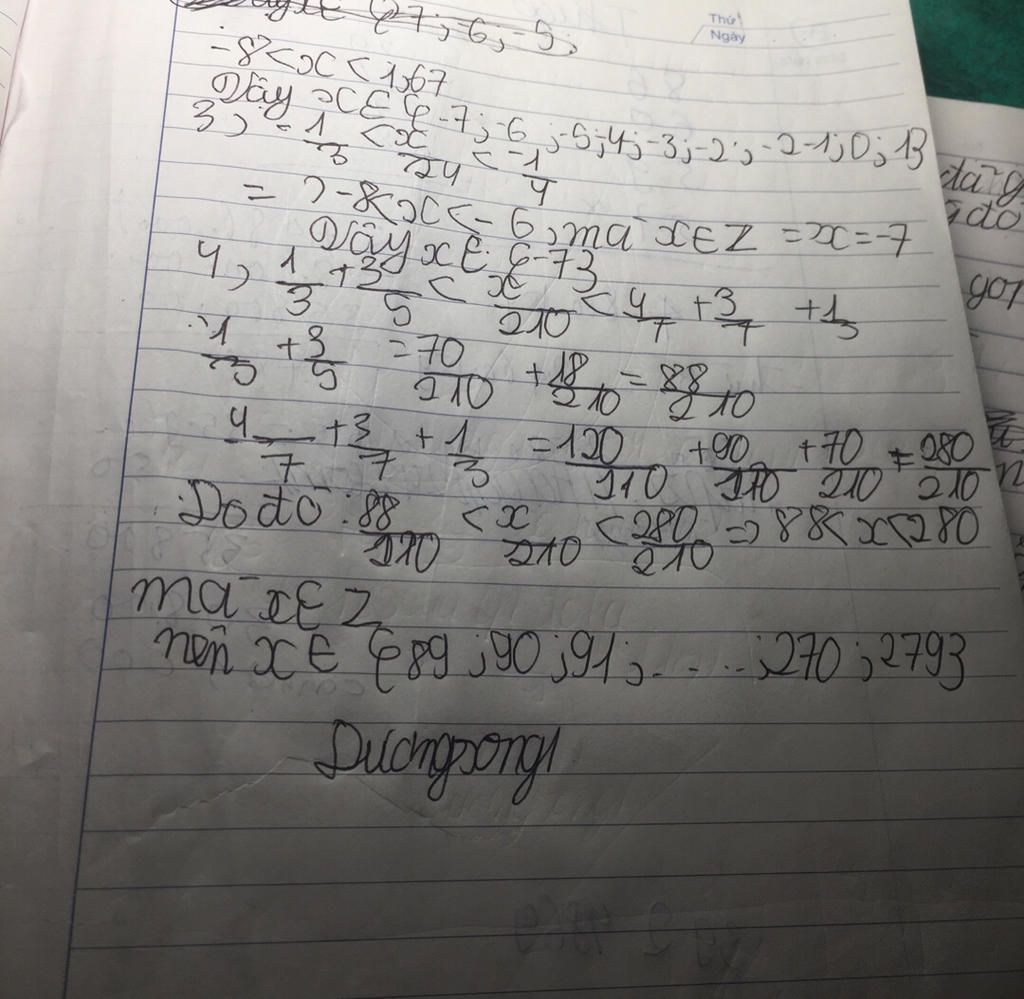 Thứ
Ngày
{-7; -6; -5;
-8 < x < 1,67
Vậy x ∈ {-7; -6; -5; 4; -3; -2; -2 -1; 0; 1}
3, -1/3 < x/24 < -1/4
=> -8 < x < -6, mà x ∈ Z => x = -7
Vậy x ∈ {-7}
4, 1/3 + 3/5 < x/210 < 4/7 + 3/7 + 1/3
1/3 + 3/5 = 70/210 + 18/210 = 88/210
4/7 + 3/7 + 1/3 = 120/210 + 90/210 + 70/210 = 280/210
Do đó: 88/210 < x/210 < 280/210 => 88 < x < 280
mà x ∈ Z
nên x ∈ {89; 90; 91; ....; 270; 279}